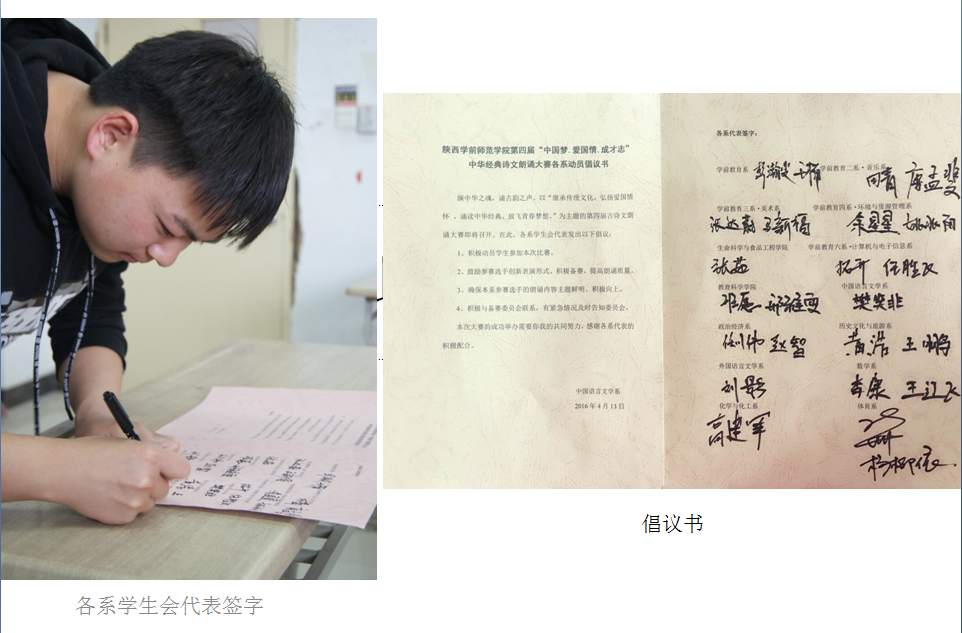 各系学生会代表签字
陕西学前师范学院第四届“中国梦.爱国情.成才志”
中华经典诗文朗诵大赛各系动员倡议书
演中华之魂，诵古韵之声。以“继承传统文化，弘扬爱国情
怀 ，诵读中华经典，放飞青春梦想。”为主题的第四届古诗文朗
诵大赛即将召开。在此，各系学生会代表发出以下倡议：
1、积极动员学生参加本次比赛。
2、鼓励参赛选手创新表演形式，积极备赛，提高朗诵质量。
3、确保本系参赛选手的朗诵内容主题鲜明，积极向上。
4、积极与备赛委员会联系，有紧急情况及时告知委员会。
本次大赛的成功举办需要你我的共同努力，感谢各系代表的
积极配合。
中国语言文学系
2016 年 4 月 13 日
各系代表签字：
学前教育系 学前教育二系·音乐系
学前教育三系·美术系 学前教育四系·环境与资源管理系
生命科学与食品工程学院 学前教育六系·计算机与电子信息系
张茹
教育科学学院 中国语言文学系
邓愿 樊奕非
政治经济系 历史文化与旅游系
赵智 黄浩 王鹏
外国语言文学系 数学系
刘影 李康
化学与化工系 体育系
高建军
倡议书